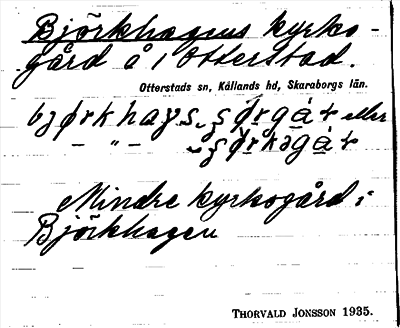 Björkhagens kyrko-
gård å i Otterstad.
Otterstads sn, Kållands hd, Skaraborgs län.
bjørkhags eller
— " —
Mindre kyrkogård i
Björkhagen
THORVALD JONSSON 1935.